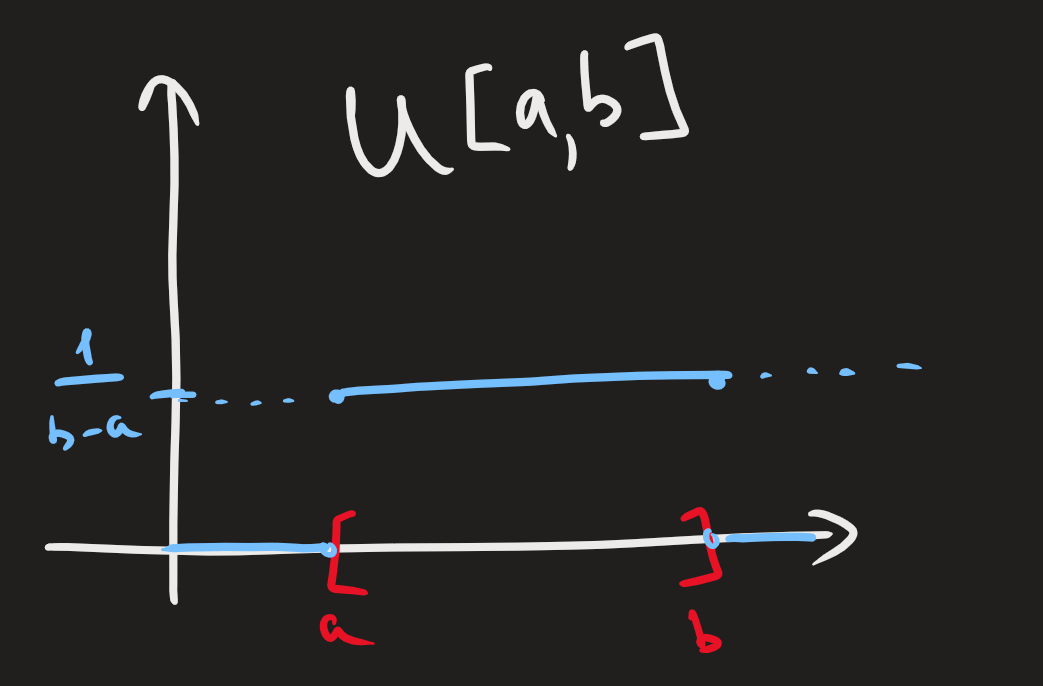 U[a,b]
1
b-a
[ ]
a b